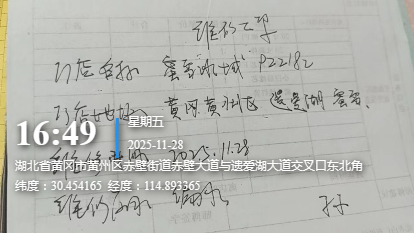 维修工单
门店名称 蜜雪冰城 P22182
门店地址 黄冈黄州区 遗爱湖 蜜雪
16:49
星期五
2025-11-28
2025.11.28
湖北省黄冈市黄州区赤壁街道赤壁大道与遗爱湖大道交叉口东北角
纬度：30.454165 经度：114.893365
维修内容